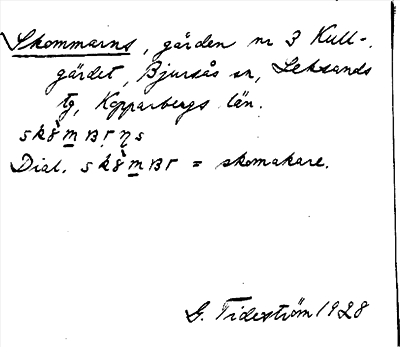 Skommarns, gården nr 3 Kull-
gärdet, Bjursås sn, Leksands
tg, Kopparbergs län.
Dial. = skomakare.
G. Tideström 1928